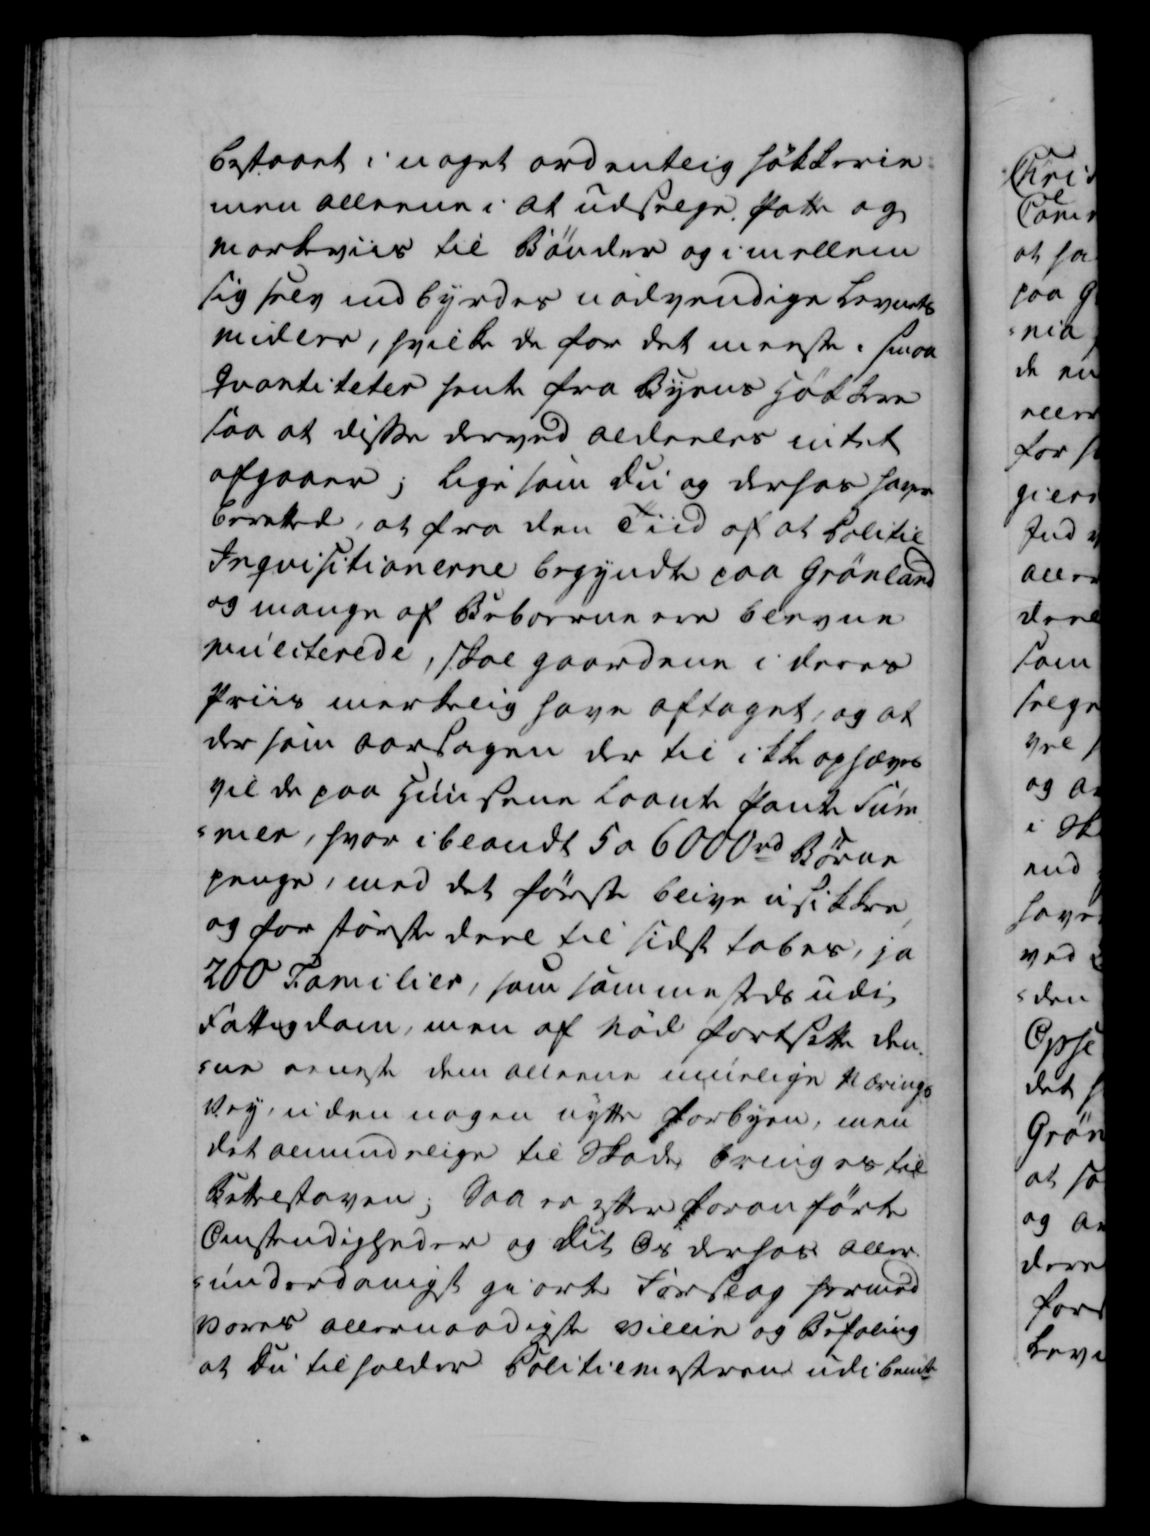 bestaaet i noget ordentlig høkkerie
men alleene i at udselge, Potte og
Markeviis til Bønder og imellem
sig selv indbyrdes nødvendige Levnets
midler, hvilke de for det meeste i smaa
Qvantiteter hente fra Byens Høkkere
saa at disse derved aldeeles intet
afgaaer; ligesom Du og derhos haver
berettet, at fra den Tiid af at Politie
Inqvisitionerne begyndte paa Grønland
og mange af Beboerne ere blevne
mulcterede, skal gaardene i deres
Priis merkelig have aftaget, og at
dersom aarsagen der til ikke ophæves
vil de paa Huusene Laante Pante Sum-
=mer, hvor iblandt 5 a 6000 rd Børne
penge, med det første blive usikkre
og for største deel til sidst tabes, ja
200 Familier, som sammesteds udi
Fattigdom, men af Nød fortsætte den-
=ne eeneste dem alleene muelige Nærings
Vey, uden nogen nytte for byen, men
det almindelige til Skade bringes til
Bettelstaven; Saa er efter foranførte
Omstendigheder og Dit Os derhos aller-
=underdanigst giorte Forslag hermed
Vores allernaadigste Villie og Befaling
at Du tilholder Politiemesteren udi bemte

Chri
at ha
paa G
de en
eller
for
giere
Ind
aller
deel
som
selge
vel
og a
i Sk
end
have
ved
=den
Opse
det
Grøn
at
og a
dere
for
Leve